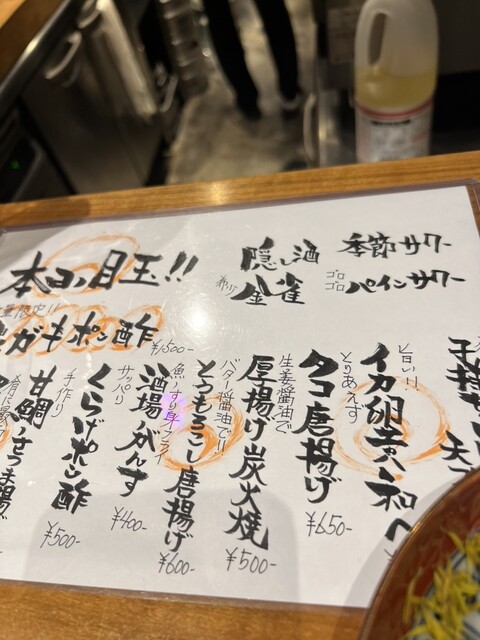 本日ノ目玉!!
隠し酒
金雀
季節サワー
ゴロゴロ パインサワー
ガキポン酢
¥500-
旨い!!
とりあえず
イカ卵黄和へ
タコ唐揚げ
¥650-
生姜醤油で
厚揚げ炭火焼
¥500-
バター醤油で!!
とうもろこし唐揚げ
¥600-
魚ノすり身フライ
酒場がんす
¥400-
サッパリ
くらげポン酢
¥500-
手作り
甘鯛さつま揚げ